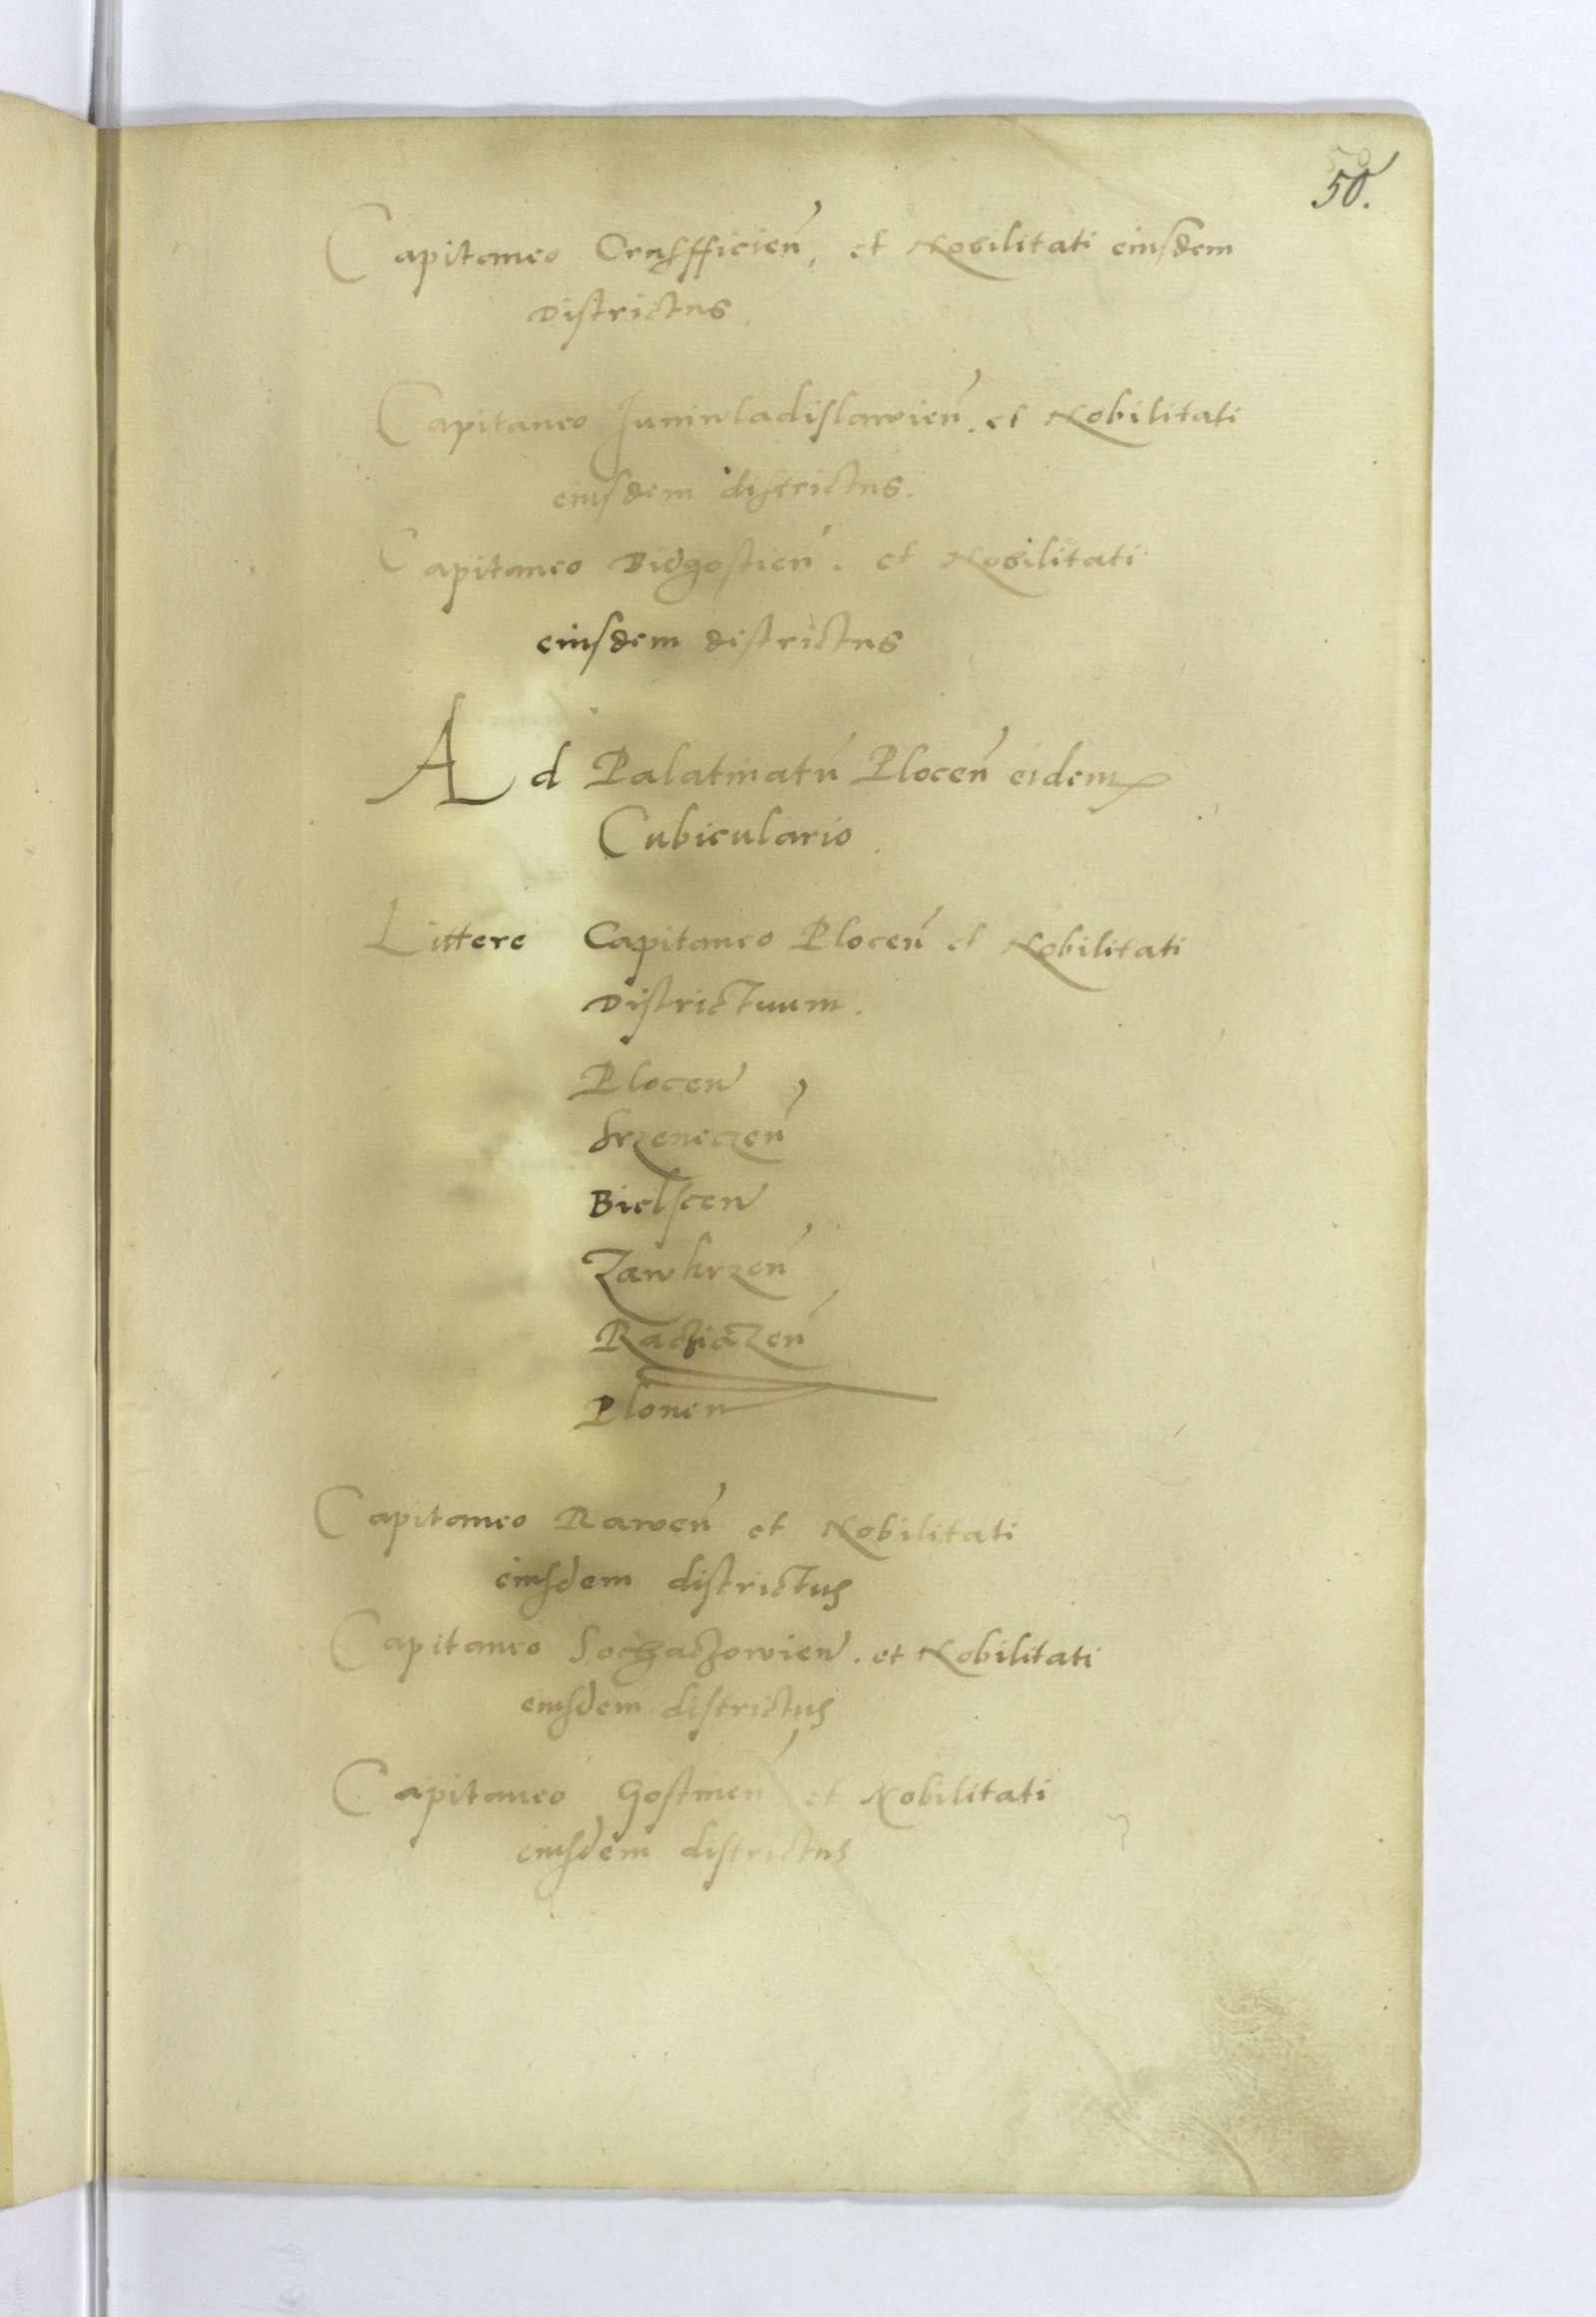 50.
Capitaneo Crusfficien̄, et Nobilitati eiusdem
Districtus.
Capitaneo Juniuladislawien̄. et Nobilitati
eiusdem districtus.
Capitaneo Bidgostien̄. et Nobilitati
eiusdem districtus
Ad Palatinatū Plocen̄ eidem
Cubiculario.
Littere Capitaneo Plocen̄ et Nobilitati
Districtuum.
Plocen̄
Srzeneczen̄
Bielscen̄
Zawkrzen̄
Racziazen̄
Plonen̄
Capitaneo Rawen̄ et Nobilitati
eiusdem districtus
Capitaneo Sochaczowien̄. et Nobilitati
eiusdem districtus
Capitaneo Gostinen̄ et Nobilitati
eiusdem districtus